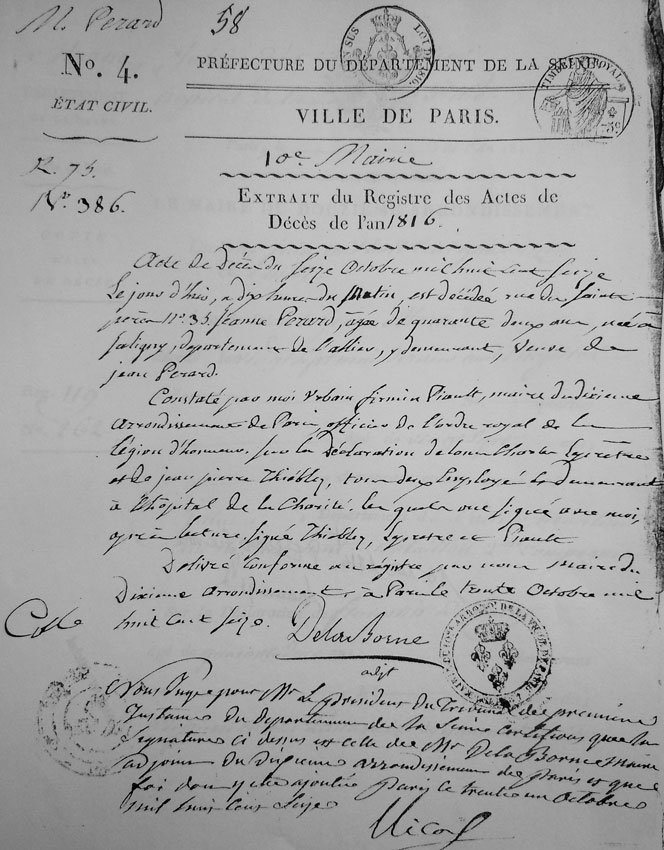 M. Perard
58
No. 4.
ÉTAT CIVIL.
PRÉFECTURE DU DÉPARTEMENT DE LA SEINE.
TIMBRE ROYAL
VILLE DE PARIS.
10e Mairie
R. 75.
No. 386.
EXTRAIT du Registre des Actes de
Décès de l'an 1816.
Acte de Décès du Seize Octobre mil huit Cent Seize
Le jour d'hier, a dix heures du Matin, est décédée rue des Saints
pères No. 35. Jeanne Perard, agée de quarante deux ans, née à
département de l'allier, y demeurant, Veuve de
jean Perard.
Constaté par moi Urbain firmin Piault, maire du dixieme
arrondissement de Paris, officier de l'ordre royal de la
légion d'honneur. sur la Déclaration de Charles Lepretre
et de jean pierre Thiebley, tous deux Employés et demeurant
à l'hôpital de la Charité. les quels ont signé avec moi,
après lecture. signé Thiebley, Lepretre et Piault
Delivré Conforme au registre par nous maire du
Dixieme arrondissement, a Paris le trente Octobre mil
huit Cent Seize.
DelaBorne
adjt
Nous Juge pour Mr. Le président du Tribunal de première
Instance du département de la Seine Certifions que la
signature ci dessus est celle de Mr. DelaBorne Maire
adjoint du Dixieme arrondissement de Paris et que
foi doit y être ajoutée Paris le trente un Octobre
mil huit Cent Seize